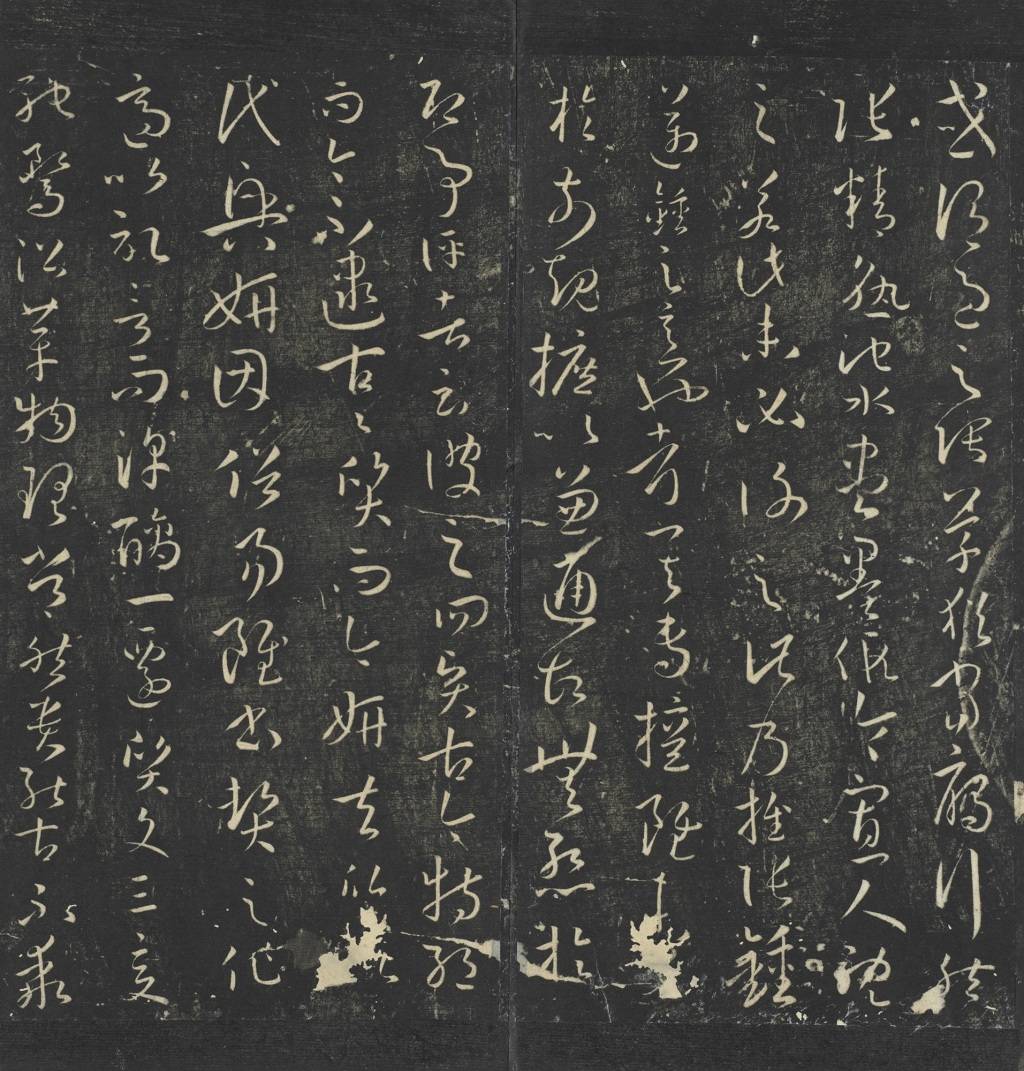 或謂過之張草猶當鴈行然
張精熟池水盡墨假令寡人耽
之若此未必謝之此乃推張鍾
邁鍾之意也考其專擅雖
於前規摭以兼通故無慙於
即事評者云彼之四賢古今特絕
而今不逮古〻質而今妍夫
代興妍因俗易雖書契之作
適以記言而淳醨一遷質文三變
馳騖沿革物理常然貴能古不乖